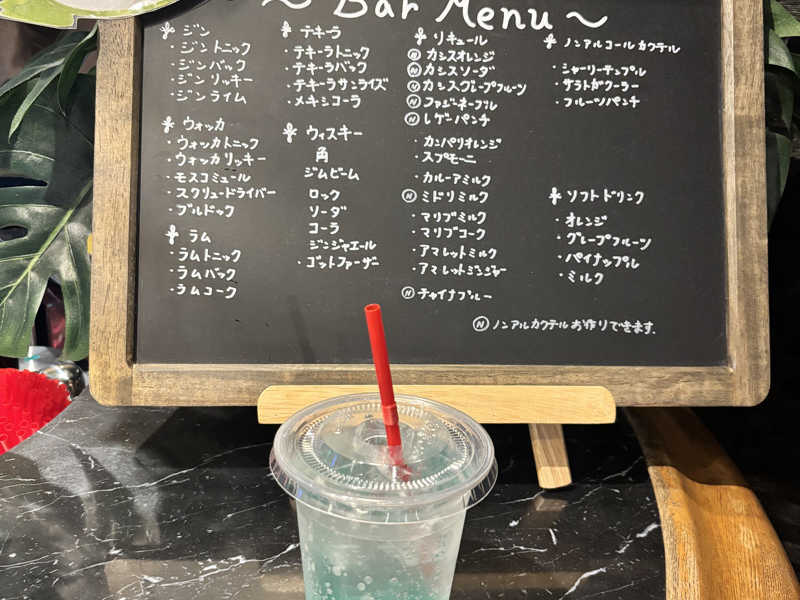 ~ Bar Menu ~
ジン
・ジントニック
・ジンバック
・ジンリッキー
・ジンライム
ウォッカ
・ウォッカトニック
・ウォッカリッキー
・モスコミュール
・スクリュードライバー
・ブルドック
ラム
・ラムトニック
・ラムバック
・ラムコーク
テキーラ
・テキーラトニック
・テキーラバック
・テキーラサンライズ
・メキシコーラ
ウィスキー
角
ジムビーム
ロック
ソーダ
コーラ
ジンジャエール
・ゴットファーザー
リキュール
Ⓝ カシスオレンジ
Ⓝ カシスソーダ
Ⓝ カシスグレープフルーツ
Ⓝ ファジーネーブル
Ⓝ レゲーパンチ
・カンパリオレンジ
・スプモーニ
・カルーアミルク
Ⓝ ミドリミルク
・マリブミルク
・マリブコーク
・アマレットミルク
・アマレットジンジャー
Ⓝ チャイナブルー
ノンアルコールカクテル
・シャーリーテンプル
・サラトガクーラー
・フルーツパンチ
ソフトドリンク
・オレンジ
・グレープフルーツ
・パイナップル
・ミルク
Ⓝ ノンアルカクテルお作りできます.